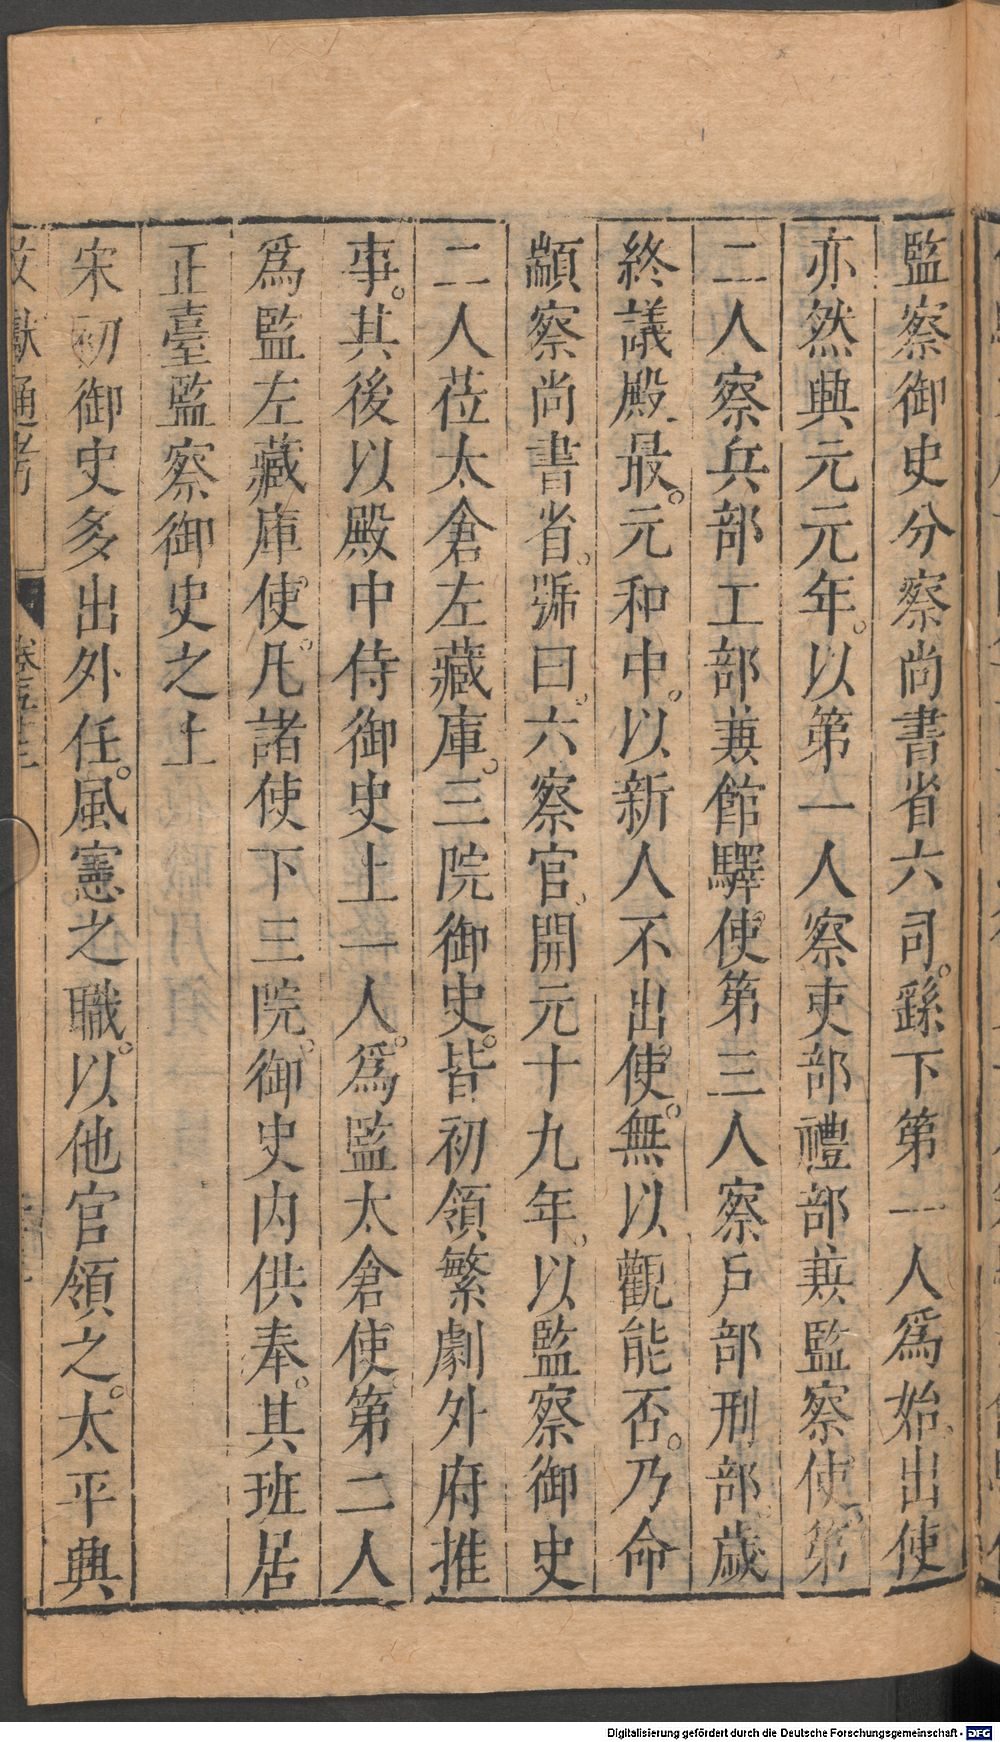 監察御史分察尚書省六司。繇下第一人爲始、出使
亦然興元元年。以第一人察吏部禮部兼監察使。第
二人察兵部工部兼館驛使。第三人察戶部刑部歲
終議殿最。元和中。以新人不出使。無以觀能否。乃命
顓察尚書省。號曰。六察官、開元十九年、以監察御史
二人莅太倉左藏庫。三院御史。皆初領繁劇外府推
事。其後以殿中侍御史上一人。爲監太倉使。第二人
爲監左藏庫使。凡諸使下三院。御史内供奉。其班居
正臺監察御史之上
宋初御史多出外任。風憲之職。以他官領之。太平興
文獻通考 卷五十三
Digitalisierung gefördert durch die Deutsche Forschungsgemeinschaft - DFG